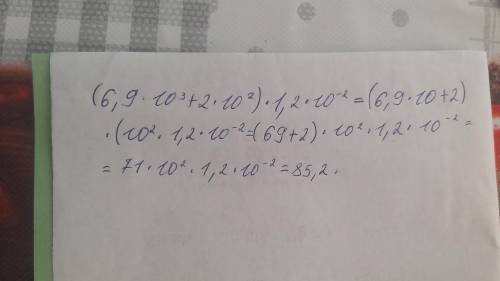 (6,9 · 10³ + 2 · 10²) · 1,2 · 10⁻² = (6,9 · 10 + 2)
· (10² · 1,2 · 10⁻² = (69 + 2) · 10² · 1,2 · 10⁻² =
= 71 · 10² · 1,2 · 10⁻² = 85,2 ·